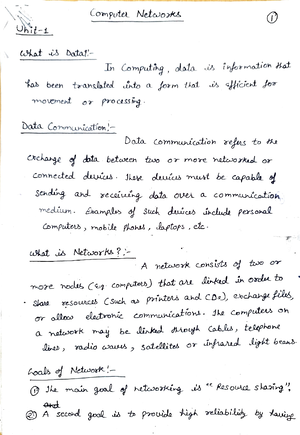 Computer Networks
①
Unit-1
What is Data?:-
In Computing, data is information that
has been translated into a form that is efficient for
movement or processing.
Data Communication!:-
Data communication refers to the
exchange of data between two or more networked or
connected devices. These devices must be capable of
sending and receiving data over a communication
medium. Examples of such devices include personal
computers, mobile phones, laptops. etc.
What is Networks?:-
A network consists of two or
more nodes (e.g. computers) that are linked in order to
share resources (such as printers and CDs), exchange files,
or allow electronic communications. The computers on
a network may be linked through cables, telephone
lines, radio waves, satellites or infrared light beams.
Goals of Network!:-
① The main goal of networking is "Resource sharing".
and
② A second goal is to provide high reliability by having